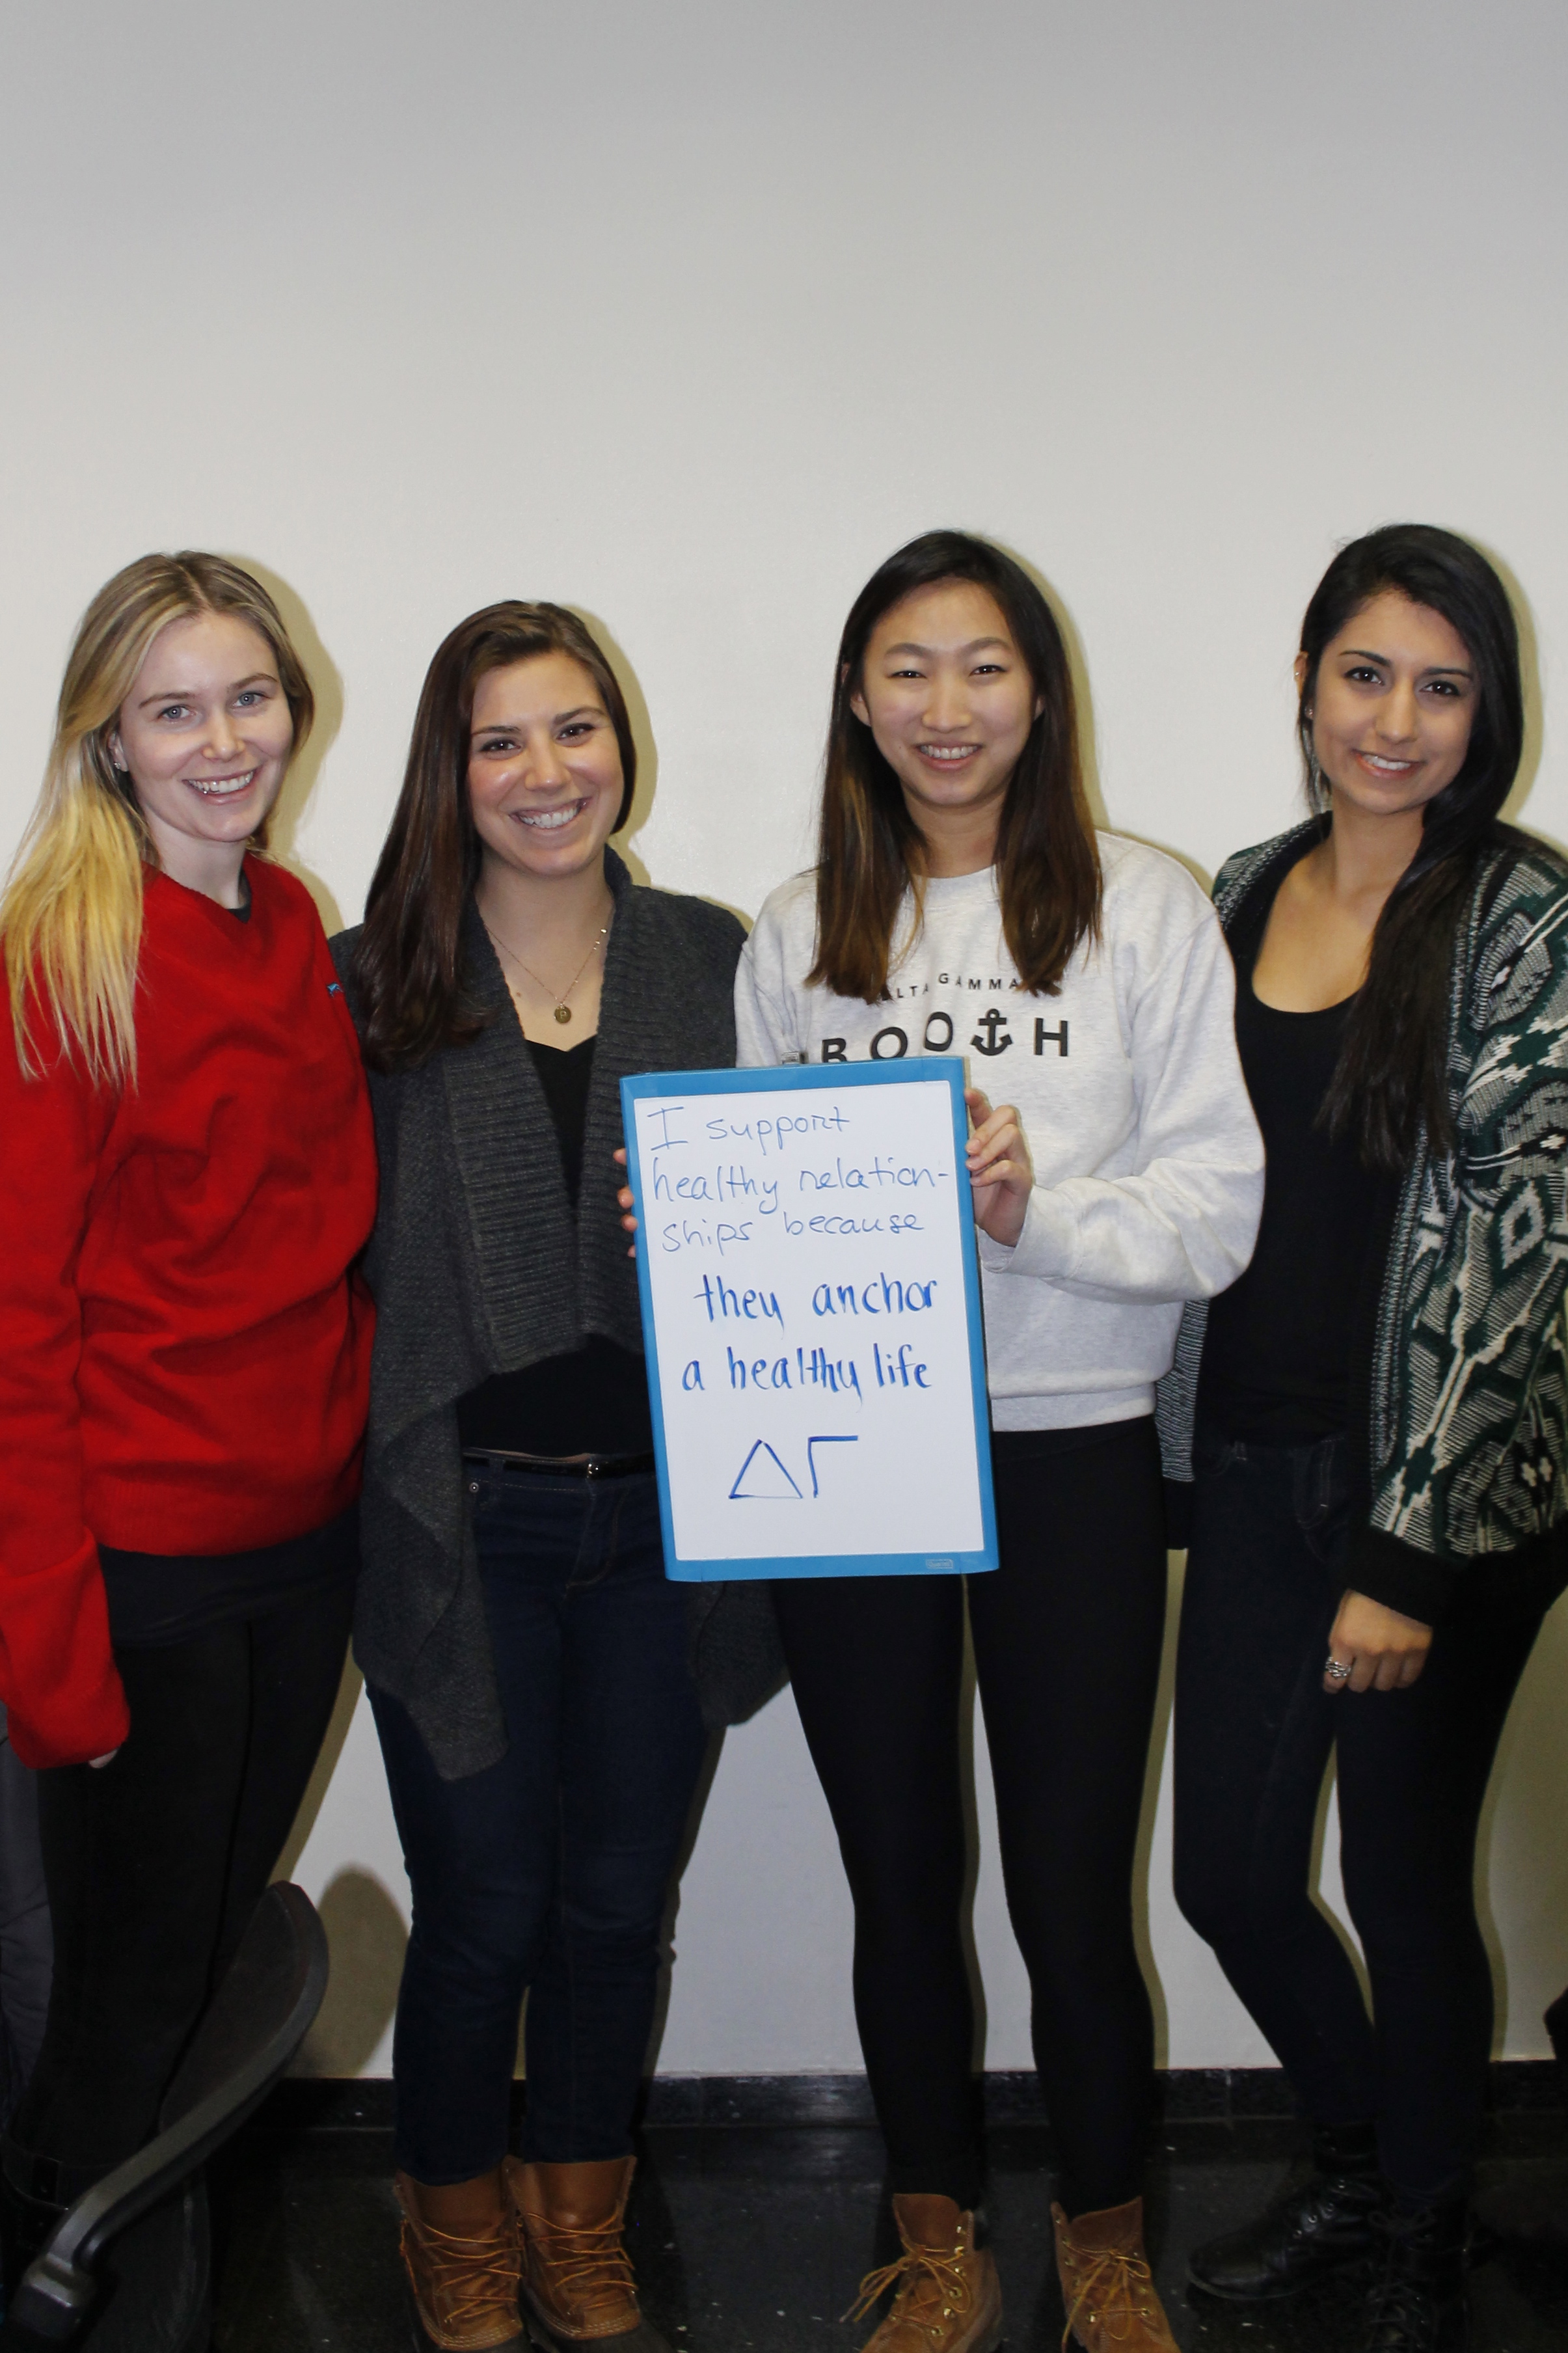 GAMMA
BOOTH
I support
healthy relation-
ships because
they anchor
a healthy life
ΔΓ